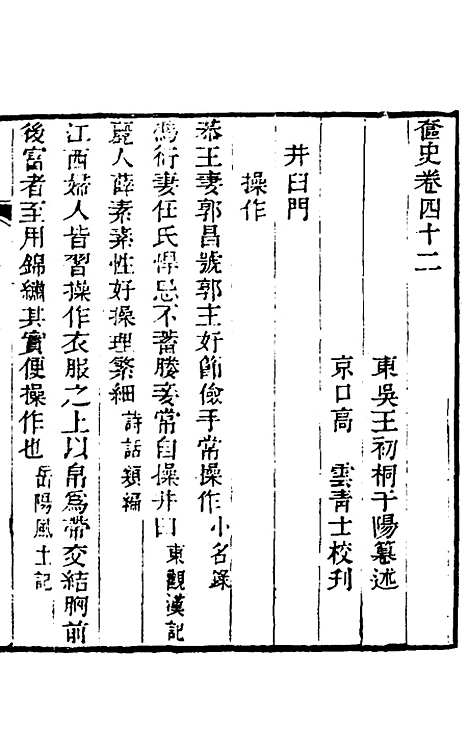 奩史卷四十二
東吳王初桐于陽纂述
京口高 雲青士校刊
井臼門
操作
恭王妻郭昌號郭主好節儉手常操作小名錄
馮衍妻任氏悍忌不蓄媵妾常自操井臼東觀漢記
麗人薛素素性好操理繁細詩話類編
江西婦人皆習操作衣服之上以帛爲帶交結胸前
後富者至用錦繡其實便操作也岳陽風土記